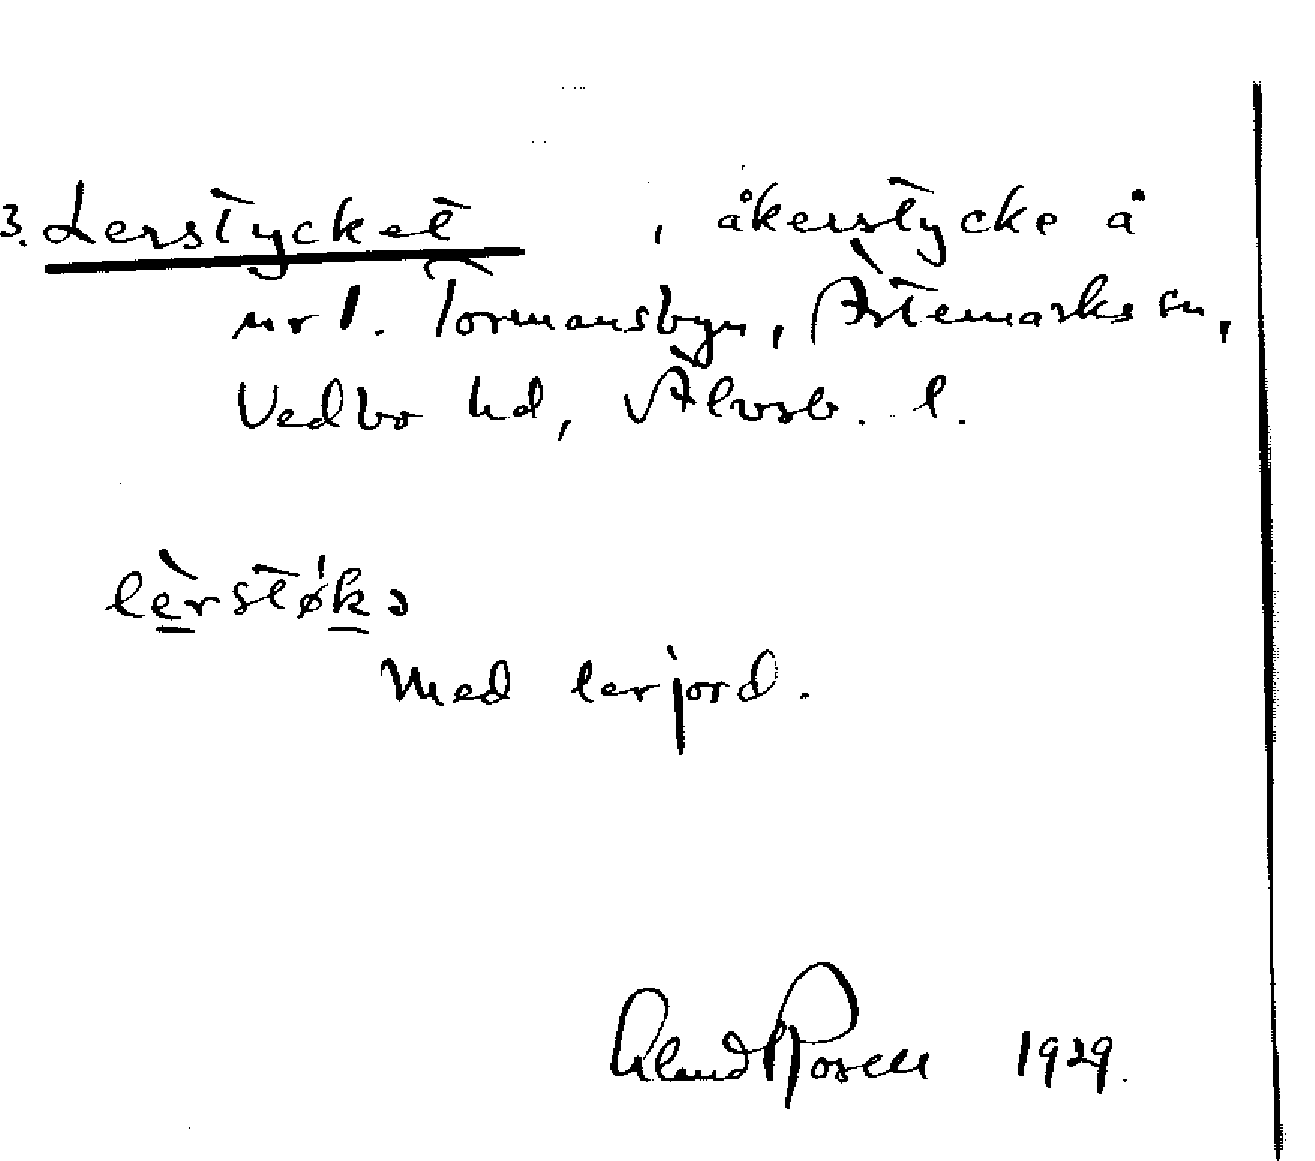 3. Lerstycket, åkerstycke å
nr 1. Tormansbyn, Ärtemarks sn,
Vedbo hd, Älvsb. l.
lèrstø̍kə
Med lerjord.
Rosell 1929.